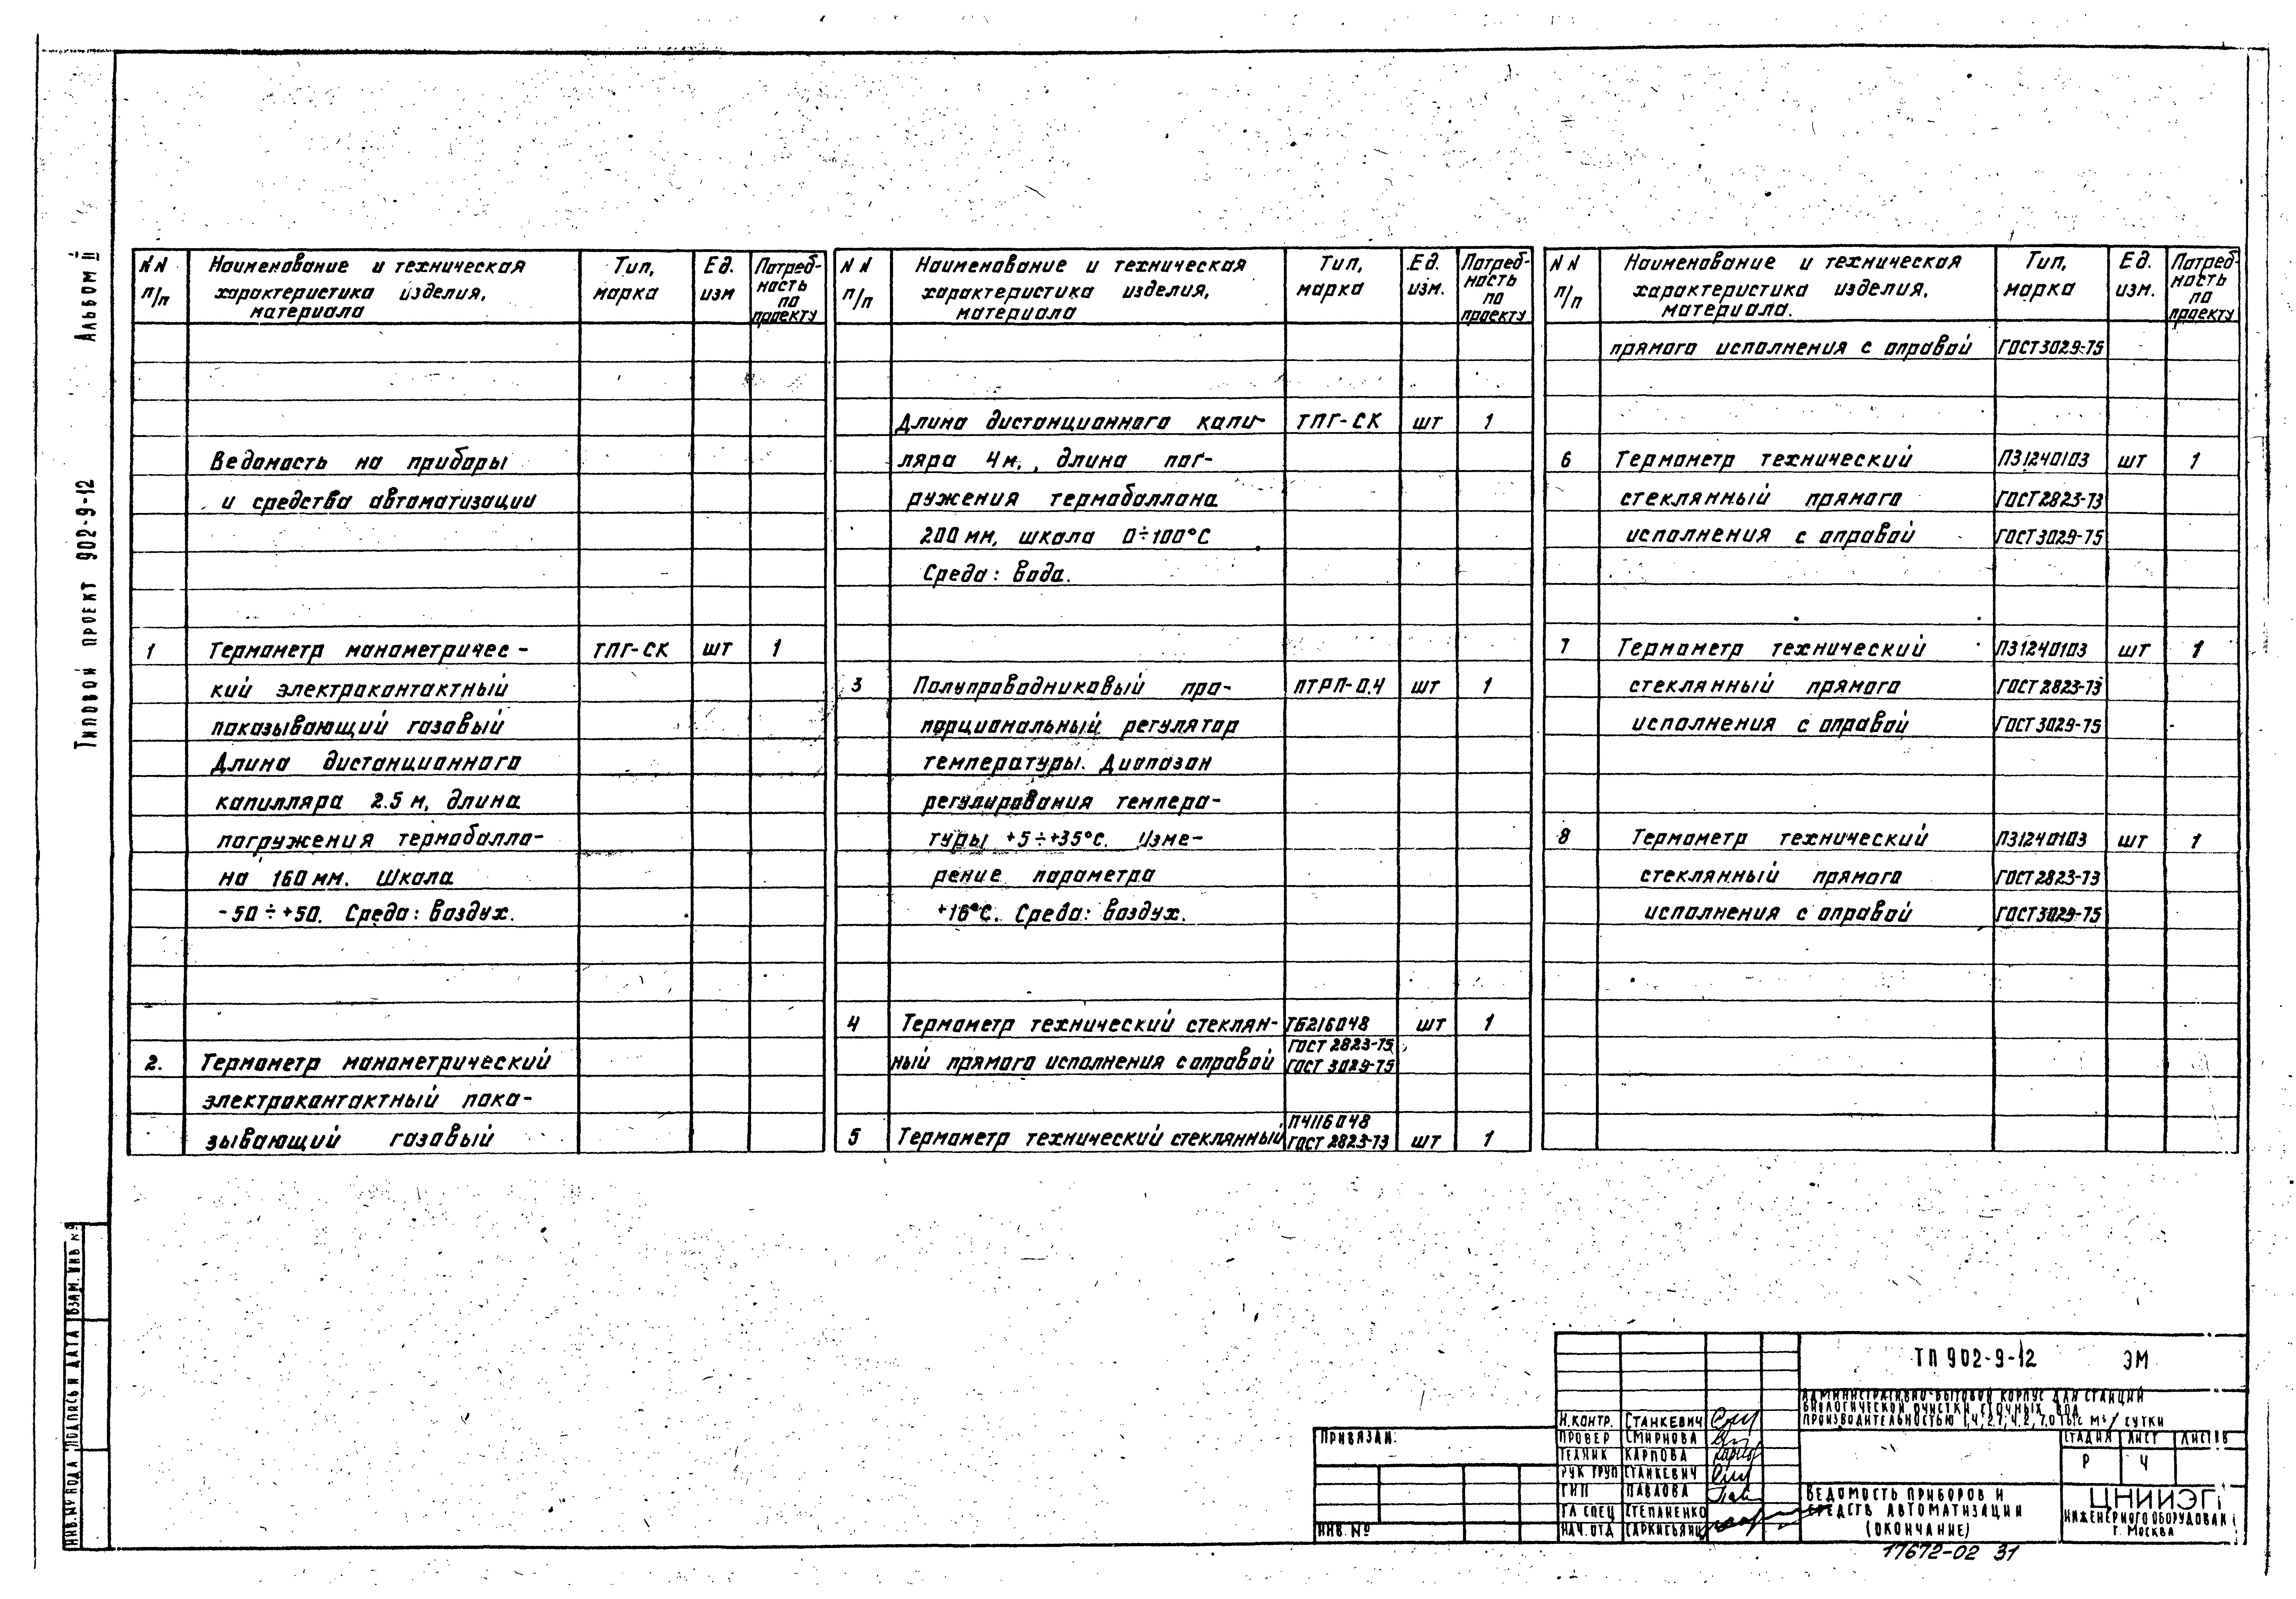 Альбом II
Типовой проект 902-9-12
NN п/п
Наименование и техническая характеристика изделия, материала
Тип, марка
Ед. изм
Потребность по проекту
Ведомость на приборы
и средства автоматизации
1 Термометр манометричес- ТПГ-СК шт 1
кий электроконтактный
показывающий газовый
Длина дистанционного
капилляра 2.5 м, длина
погружения термобалло-
на 160 мм. Шкала
-50 ÷ +50. Среда: воздух.
2. Термометр манометрический
электроконтактный пока-
зывающий газовый
NN п/п
Наименование и техническая характеристика изделия, материала
Тип, марка
Ед. изм.
Потребность по проекту
Длина дистанционного капи- ТПГ-СК шт 1
ляра 4м., длина пог-
ружения термобаллона
200 мм, шкала 0÷100°С
Среда: вода.
3 Полупроводниковый про- ПТРП-0,4 шт 1
порциональный регулятор
температуры. Диапазон
регулирования темпера-
туры +5÷+35°С. Изме-
рение параметра
+16°С. Среда: воздух.
4 Термометр технический стеклян- ТБ216048 шт 1
ГОСТ 2823-75
ный прямого исполнения с оправой ГОСТ 3029-75
П4116048
5 Термометр технический стеклянный ГОСТ 2823-73 шт 1
NN п/п
Наименование и техническая характеристика изделия, материала.
Тип, марка
Ед. изм.
Потребность по проекту
прямого исполнения с оправой ГОСТ 3029-75
6 Термометр технический П31240103 шт 1
стеклянный прямого ГОСТ 2823-73
исполнения с оправой ГОСТ 3029-75
7 Термометр технический П31240103 шт 1
стеклянный прямого ГОСТ 2823-73
исполнения с оправой ГОСТ 3029-75
8 Термометр технический П31240103 шт 1
стеклянный прямого ГОСТ 2823-73
исполнения с оправой ГОСТ 3029-75
Взам. инв №
Подпись и дата
Инв. № подл
Привязан:
Инв. №
ТП 902-9-12 ЭМ
Административно-бытовой корпус для станций
биологической очистки сточных вод
производительностью 1,4; 2,7; 4,2; 7,0 тыс м³/сутки
Н.контр. Станкевич
Провер Смирнова
Техник Карпова
Рук груп Станкевич
ГИП Павлова
Гл спец Степаненко
Нач. отд Саркисьянц
Стадия Лист Листов
Р 4
Ведомость приборов и
средств автоматизации
(окончание)
ЦНИИЭП
инженерного оборудован
г. Москва
17672-02 31